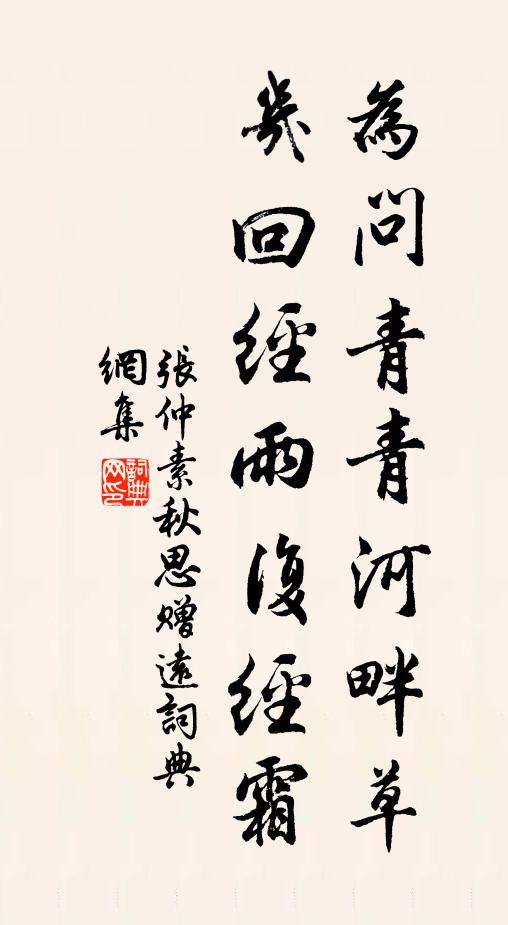 為問青青河畔草
幾回經雨復經霜
張仲素秋思贈遠詞典
網集
詞典網印